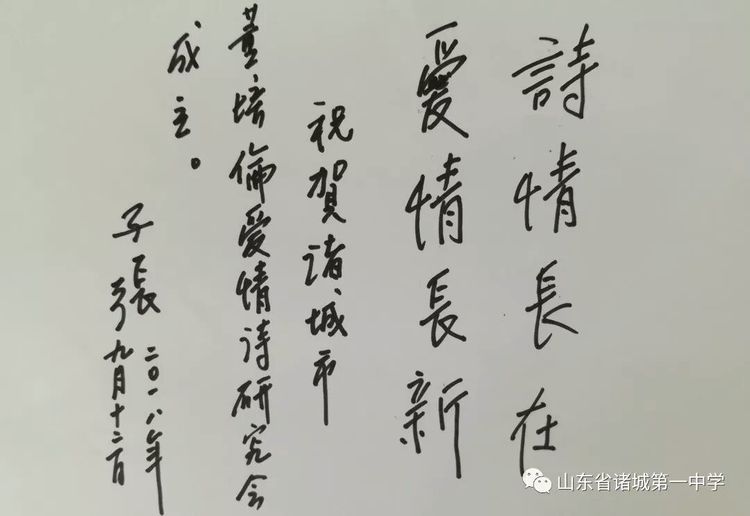 詩情長在
愛情長新
祝賀诸城市
董培倫爱情诗研究会
成立。
子張
二〇一八年
九月十二日
山东省诸城第一中学